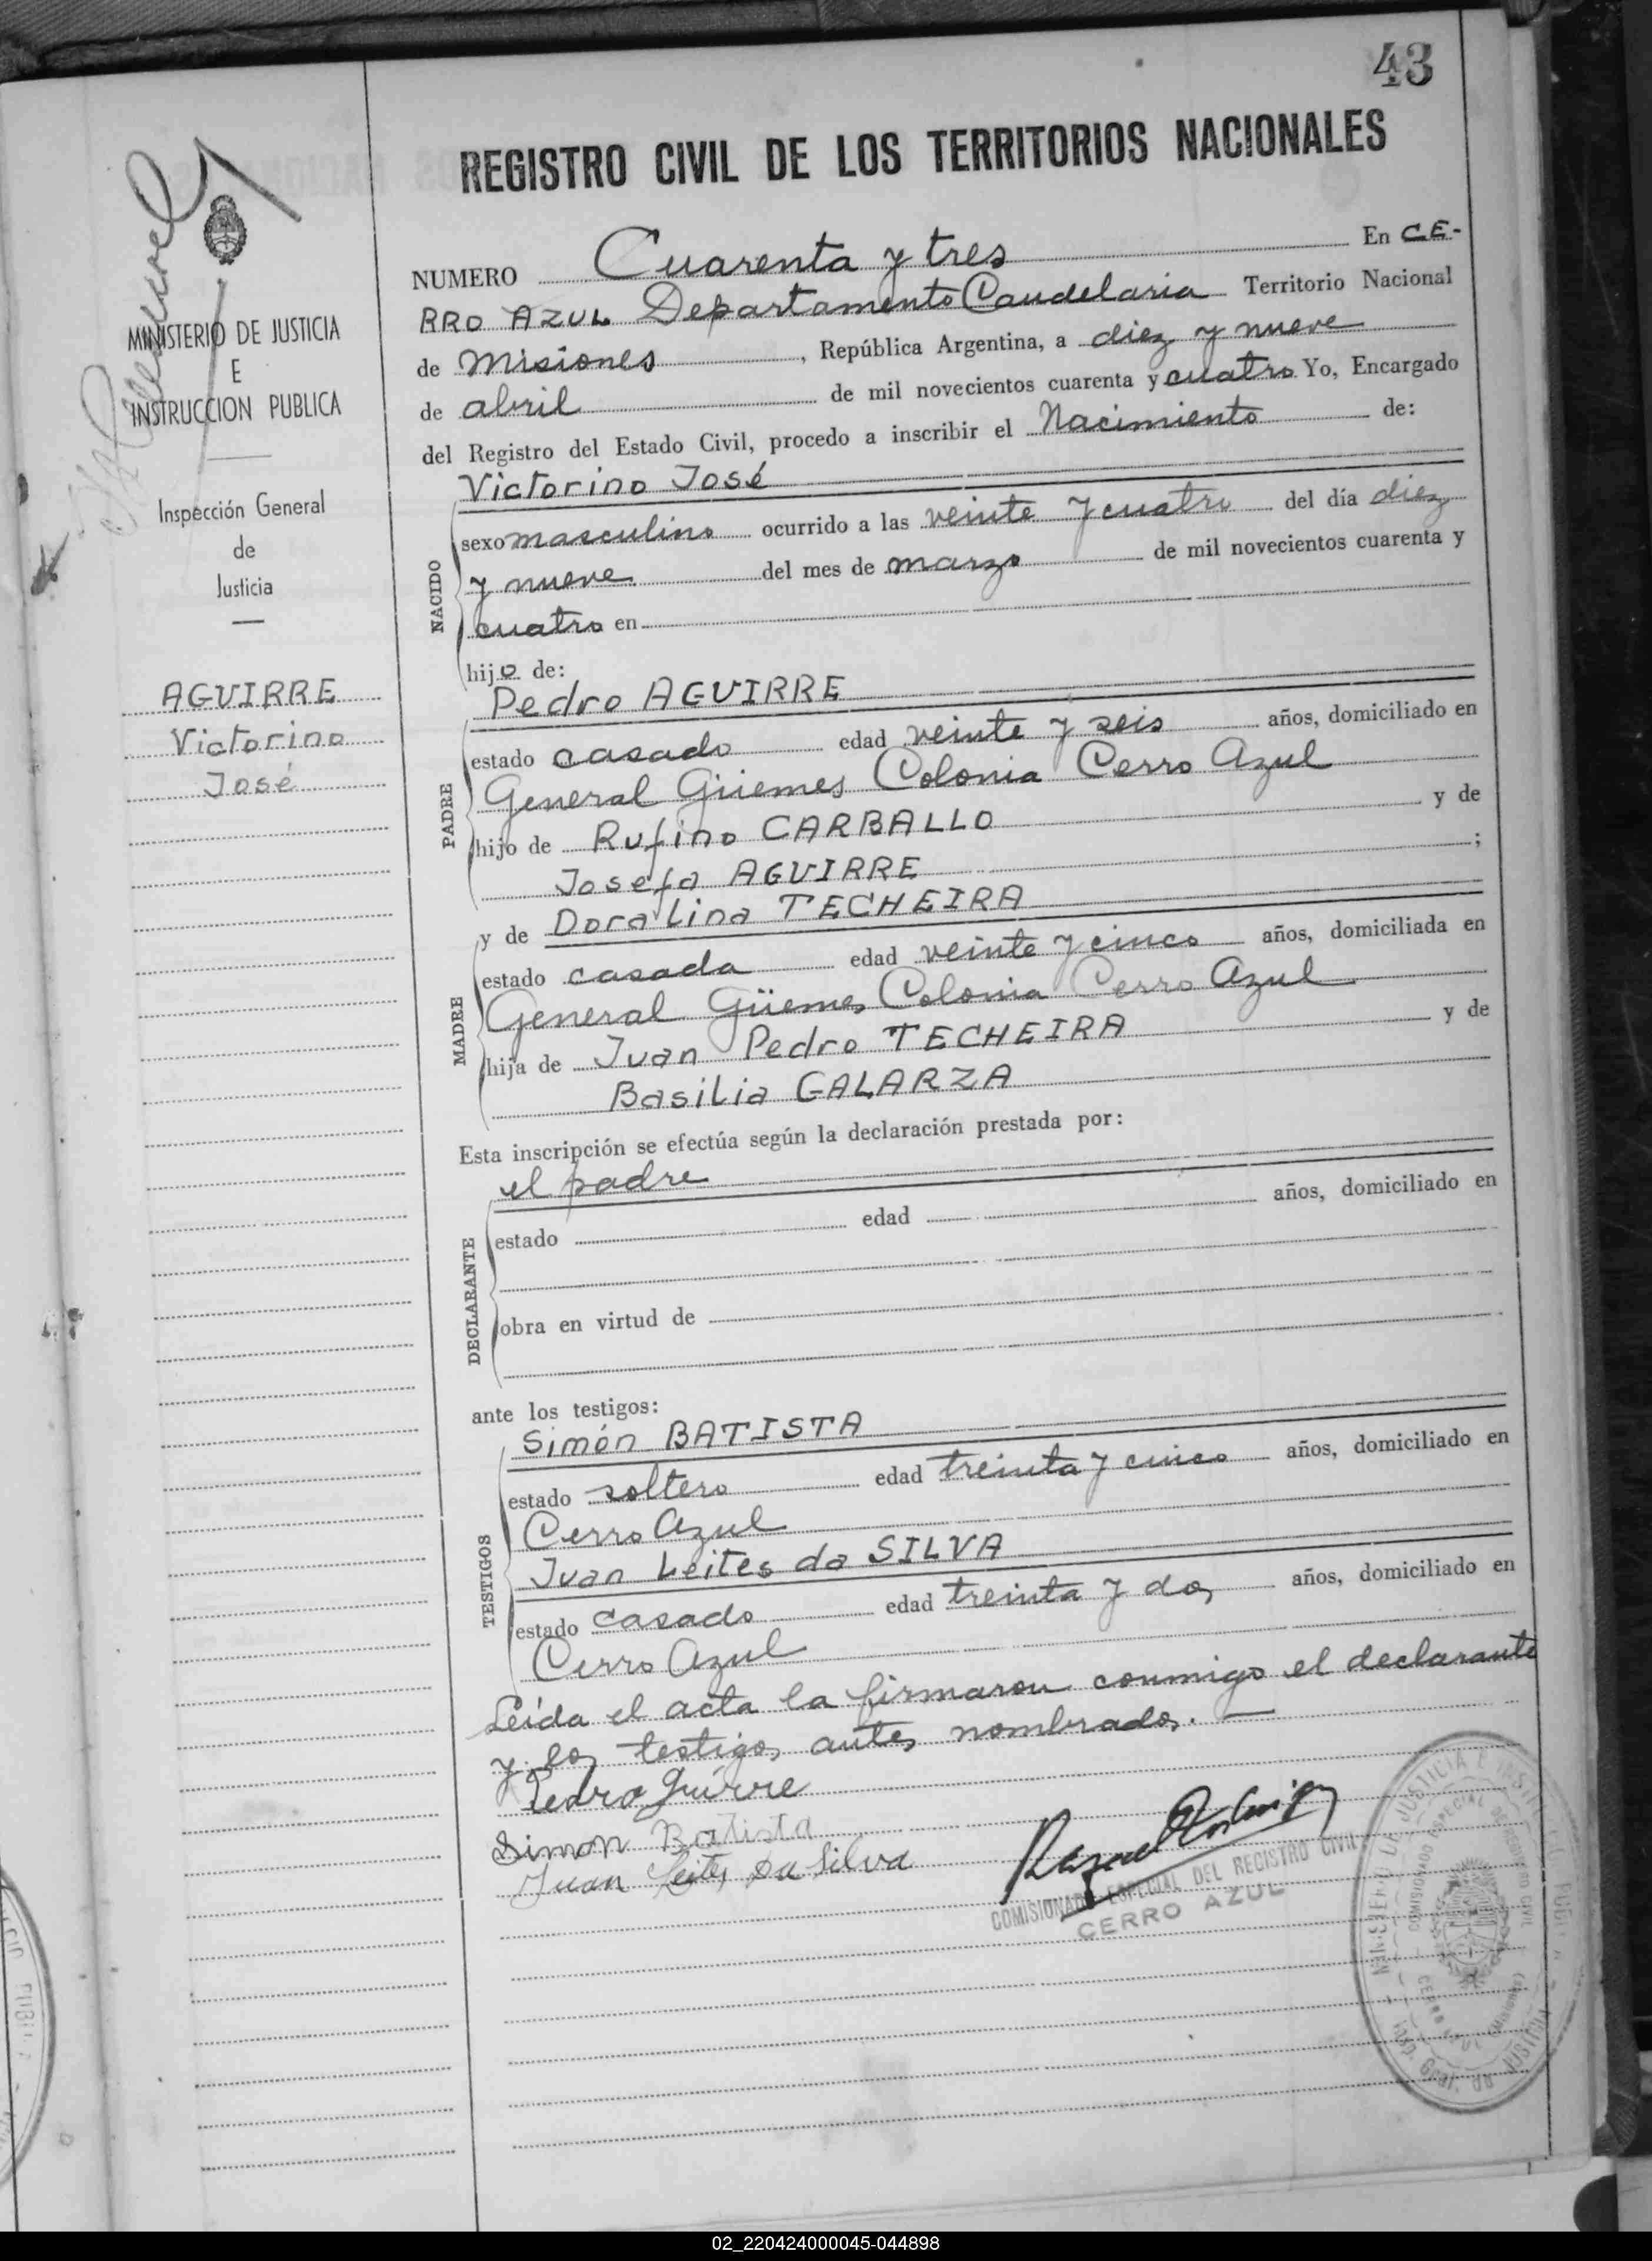 43
REGISTRO CIVIL DE LOS TERRITORIOS NACIONALES
MINISTERIO DE JUSTICIA
E
INSTRUCCION PUBLICA
Inspección General
de
Justicia
AGUIRRE
Victorino
José
NUMERO Cuarenta y tres En CE-
RRO AZUL Departamento Candelaria Territorio Nacional
de Misiones, República Argentina, a diez y nueve
de abril de mil novecientos cuarenta y cuatro Yo, Encargado
del Registro del Estado Civil, procedo a inscribir el Nacimiento de:
NACIDO
Victorino José
sexo masculino ocurrido a las veinte y cuatro del día diez
y nueve del mes de marzo de mil novecientos cuarenta y
cuatro en
hijo de:
PADRE
Pedro AGUIRRE
estado casado edad veinte y seis años, domiciliado en
General Güemes Colonia Cerro Azul
hijo de Rufino CARBALLO y de
Josefa AGUIRRE ;
MADRE
y de Doralina TECHEIRA
estado casada edad veinte y cinco años, domiciliada en
General Güemes Colonia Cerro Azul
hija de Juan Pedro TECHEIRA y de
Basilia GALARZA
Esta inscripción se efectúa según la declaración prestada por:
DECLARANTE
el padre
estado edad años, domiciliado en
obra en virtud de
ante los testigos:
TESTIGOS
Simón BATISTA
estado soltero edad treinta y cinco años, domiciliado en
Cerro Azul
Juan Leites da SILVA
estado casado edad treinta y dos años, domiciliado en
Cerro Azul
Leída el acta la firmaron conmigo el declarante
y los testigos antes nombrados. —
Simon Batista
Juan Leites Da Silva
COMISIONADO ESPECIAL DEL REGISTRO CIVIL
CERRO AZUL
02_220424000045-044898